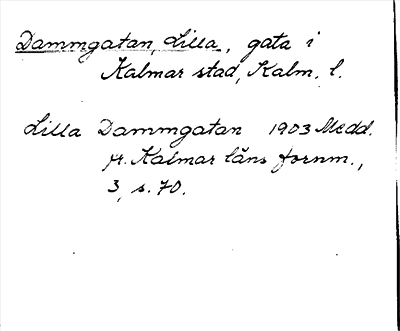 Dammgatan, Lilla, gata i
Kalmar stad, Kalm. l.
Lilla Dammgatan 1903 Medd.
fr. Kalmar läns fornm.,
3, s. 70.